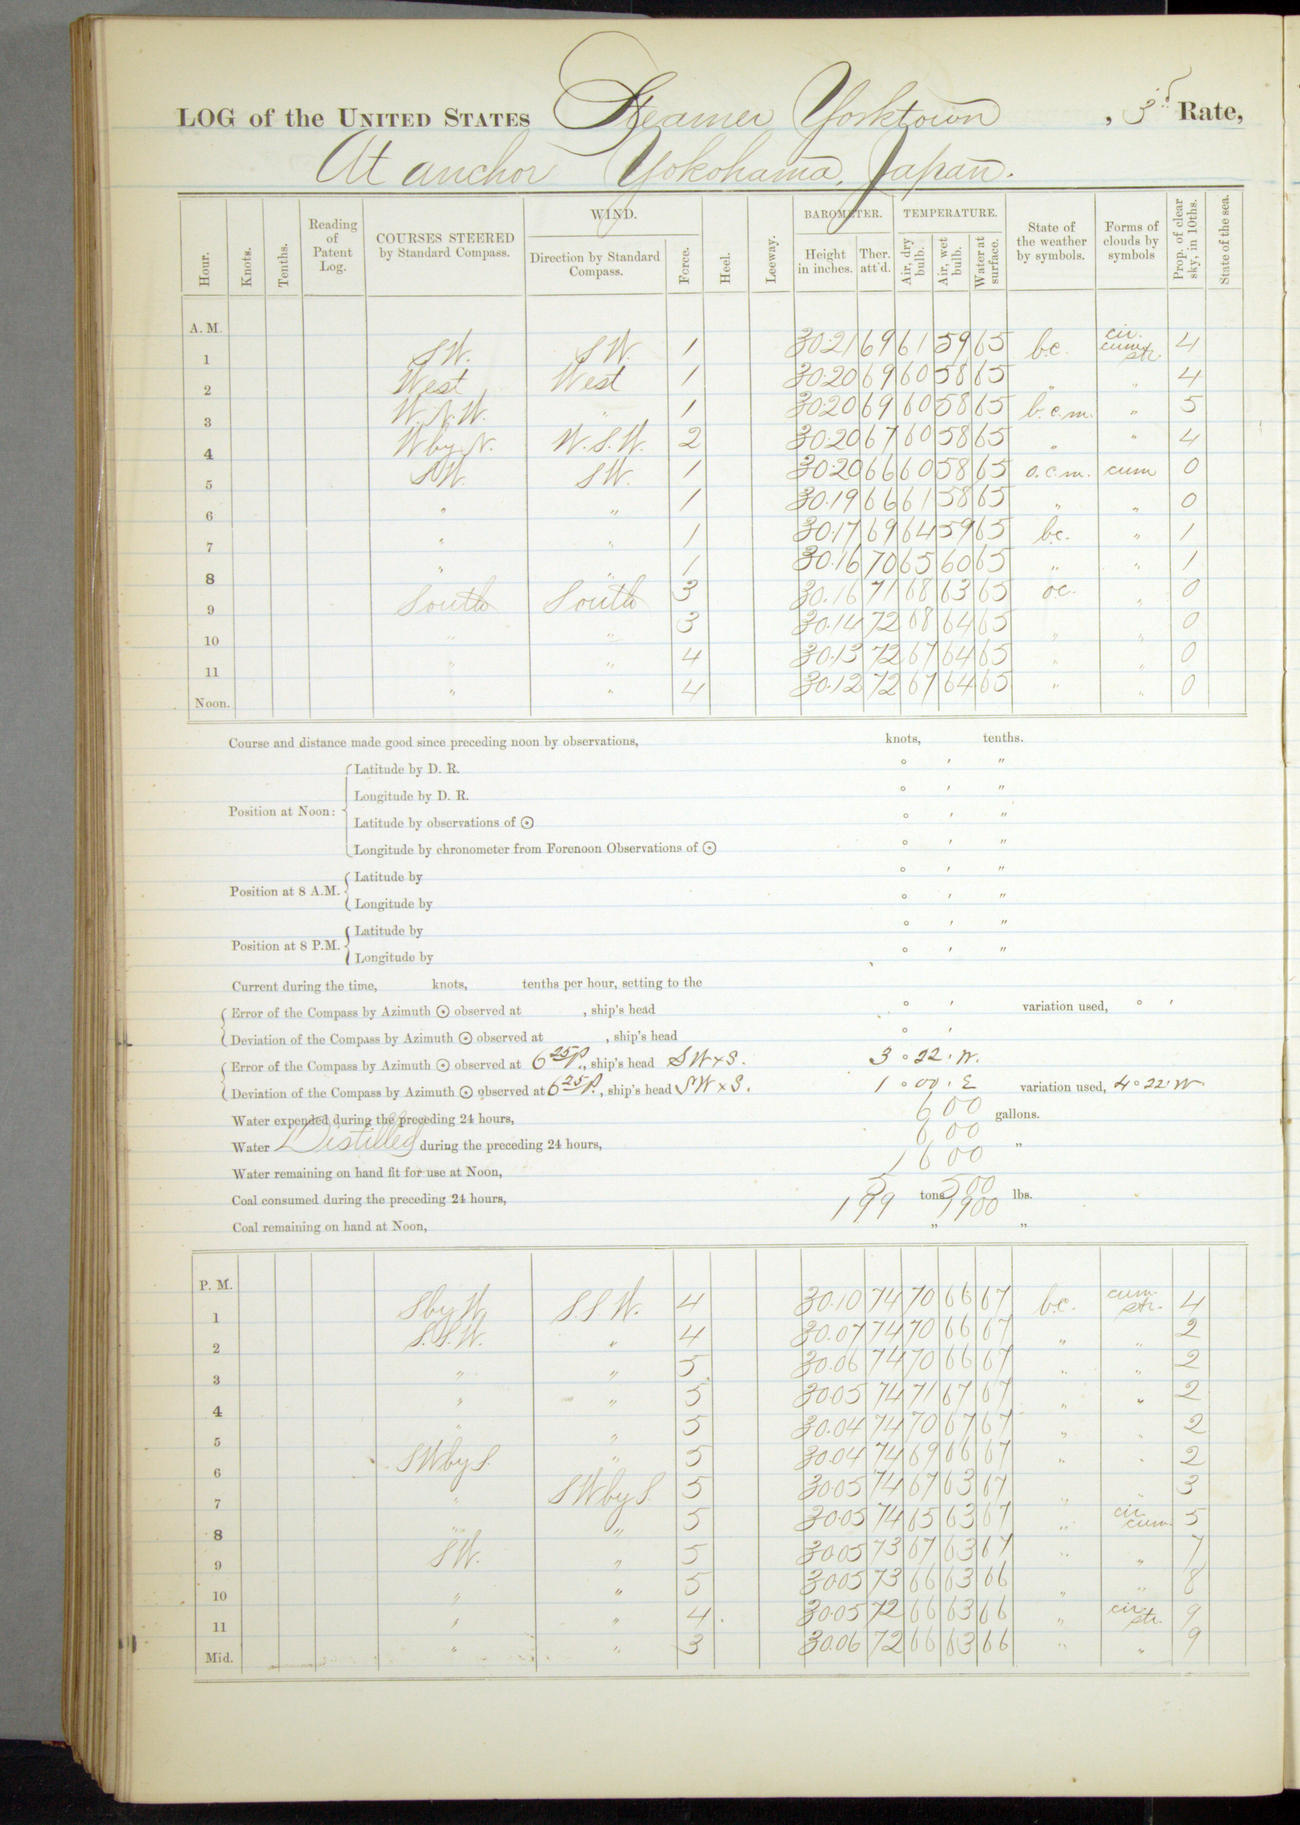 LOG of the UNITED STATES Steamer Yorktown, 3d Rate,
At anchor Yokohama, Japan.
Hour. Knots. Tenths. Reading of Patent Log. COURSES STEERED by Standard Compass. WIND. Direction by Standard Compass. Force. Heel. Leeway. BAROMETER. Height in inches. Ther. att'd. TEMPERATURE. Air, dry bulb. Air, wet bulb. Water at surface. State of the weather by symbols. Forms of clouds by symbols Prop. of clear sky, in 10ths. State of the sea.
A. M.
1 SW. SW. 1 30.21 69 61 59 65 b.c. cir. cum. str. 4
2 West West 1 30.20 69 60 58 65 " " 4
3 W.N.W. " 1 30.20 69 60 58 65 b.c.m. " 5
4 W by N. W.S.W. 2 30.20 67 60 58 65 " " 4
5 SW. SW. 1 30.20 66 60 58 65 o.c.m. cum 0
6 " " 1 30.19 66 61 58 65 " " 0
7 " " 1 30.17 69 64 59 65 b.c. " 1
8 " " 1 30.16 70 65 60 65 " " 1
9 South South 3 30.16 71 68 63 65 o.c. " 0
10 " " 3 30.14 72 68 64 65 " " 0
11 " " 4 30.13 72 67 64 65 " " 0
Noon. " " 4 30.12 72 67 64 65 " " 0
Course and distance made good since preceding noon by observations, knots, tenths.
Latitude by D. R. ° ' "
Longitude by D. R. ° ' "
Position at Noon:
Latitude by observations of ☉ ° ' "
Longitude by chronometer from Forenoon Observations of ☉ ° ' "
Position at 8 A.M. Latitude by ° ' "
Longitude by ° ' "
Position at 8 P.M. Latitude by ° ' "
Longitude by ° ' "
Current during the time, knots, tenths per hour, setting to the
Error of the Compass by Azimuth ☉ observed at , ship's head ° ' variation used, ° '
Deviation of the Compass by Azimuth ☉ observed at , ship's head ° '
Error of the Compass by Azimuth ☉ observed at 6 25 P., ship's head SW x S. 3 ° 22 ' W.
Deviation of the Compass by Azimuth ☉ observed at 6 25 P., ship's head SW x S. 1 ° 00 ' E variation used, 4 ° 22 ' W
Water expended during the preceding 24 hours, 600 gallons.
Water Distilled during the preceding 24 hours, 600 "
Water remaining on hand fit for use at Noon, 1600
Coal consumed during the preceding 24 hours, 5 tons 500 lbs.
Coal remaining on hand at Noon, 199 " 1900 "
P. M.
1 S by W S.S.W. 4 30.10 74 70 66 67 b.c. cum. str. 4
2 S.S.W. " 4 30.07 74 70 66 67 " " 2
3 " " 5 30.06 74 70 66 67 " " 2
4 " " 5 30.05 74 71 67 67 " " 2
5 " " 5 30.04 74 70 67 67 " " 2
6 SW by S. " 5 30.04 74 69 66 67 " " 2
7 " SW by S. 5 30.05 74 67 63 67 " " 3
8 " " 5 30.05 74 65 63 67 " cir. cum. 5
9 SW. " 5 30.05 73 67 63 67 " " 7
10 " " 5 30.05 73 66 63 66 " " 8
11 " " 4 30.05 72 66 63 66 " cir. str. 9
Mid. " " 3 30.06 72 66 63 66 " " 9